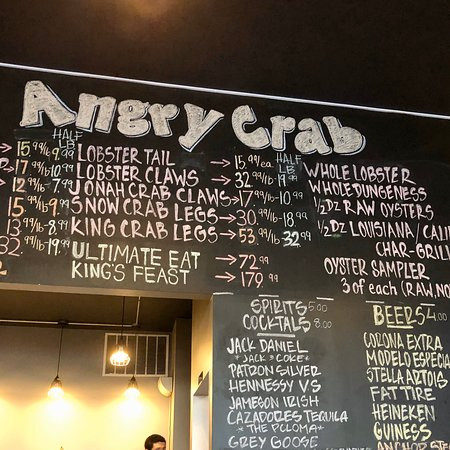 Angry Crab
HALF LB
15.99/lb 9.99
17.99/lb 10.99
12.99/lb 7.99
LOBSTER TAIL → 15.99/ea
LOBSTER CLAWS → 32.99
JONAH CRAB CLAWS → 17.99/lb 10.99
SNOW CRAB LEGS → 30.99/lb 18.99
KING CRAB LEGS → 53.99/lb 32.99
HALF LB
ULTIMATE EAT → 72.99
KING'S FEAST → 179.99
WHOLE LOBSTER
WHOLE DUNGENESS
1/2DZ RAW OYSTERS
1/2DZ LOUISIANA/CALI
CHAR-GRILL
OYSTER SAMPLER
3 of each (RAW,
SPIRITS 5.00
COCKTAILS 8.00
JACK DANIEL
*JACK & COKE*
PATRON SILVER
HENNESSY VS
JAMESON IRISH
CAZADORES TEQUILA
*THE PALOMA*
GREY GOOSE
BEERS 4.00
CORONA EXTRA
MODELO ESPECIA
STELLA ARTOIS
FAT TIRE
HEINEKEN
GUINESS
ANCHOR STE